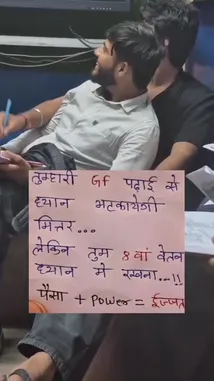 तुम्हारी GF पढ़ाई से
ध्यान भटकायेगी
मित्तर...
लेकिन तुम 8वां वेतन
ध्यान में रखना...!!
पैसा + Power = ईज्जत